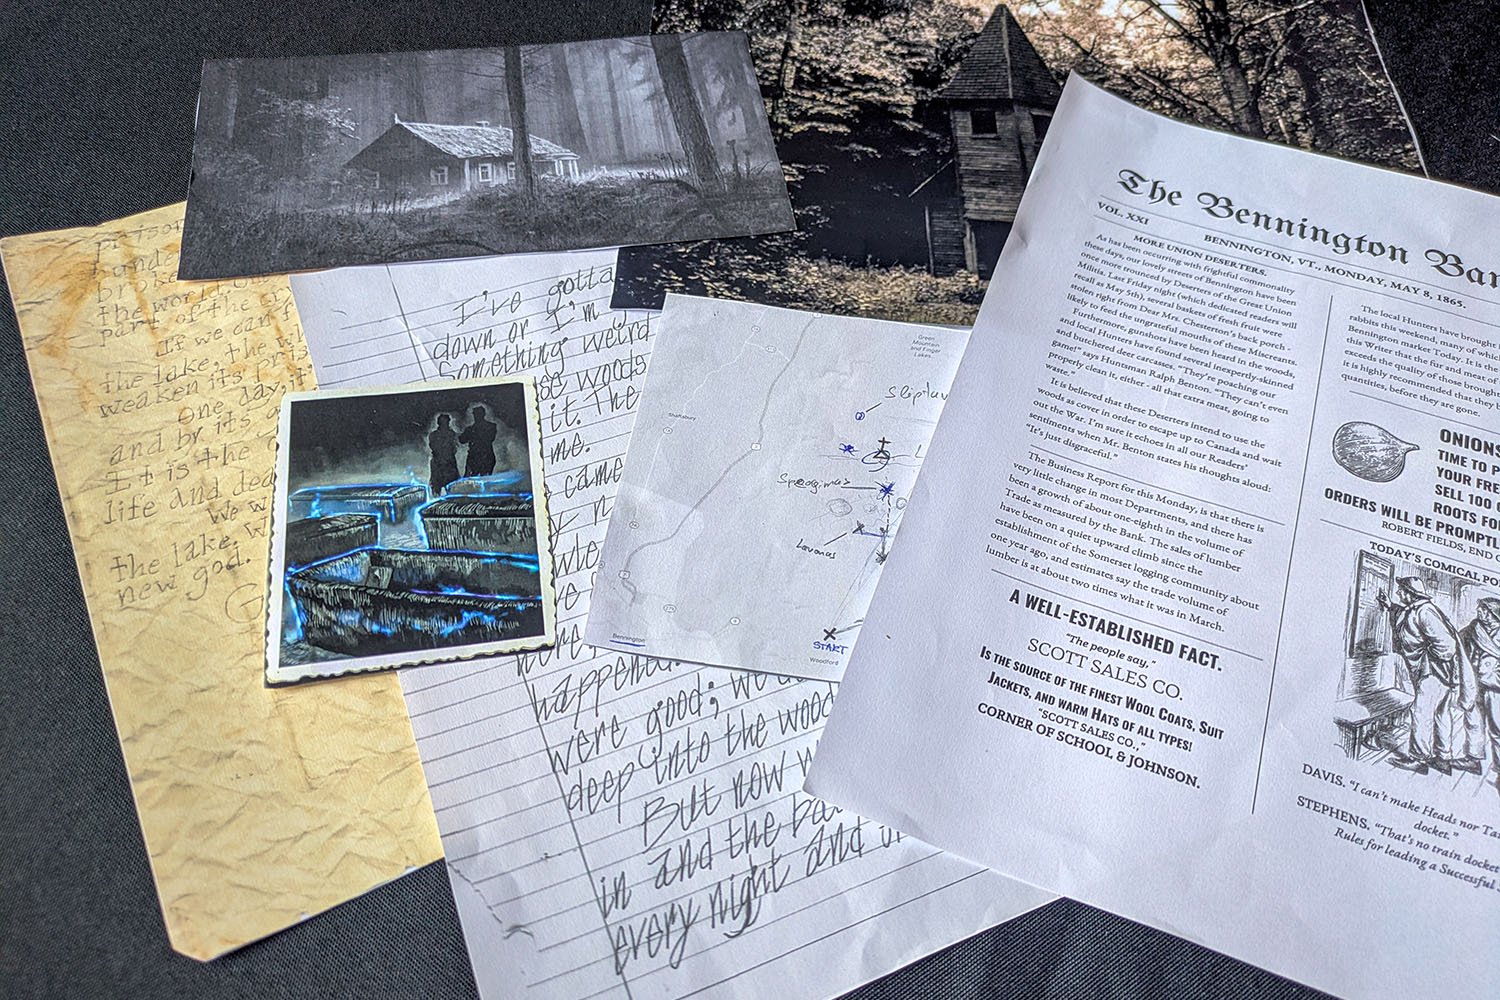 prison
under
broke
the world
part of the
If we can f
the lake, the
weaken its pris
One day, it
and by its
It is the
life and dea
We w
the lake. W
new god.
I've gotta
down or I'm
Something weird
woods
it. The
me.
came
happened.
were good; we
deep into the wood
But now w
in and the ba
every night and
Green
Mountain
and Finger
Lakes
Shaftsbury
START
Bennington
Woodford
The Bennington Ban
VOL. XXI
BENNINGTON, VT., MONDAY, MAY 8, 1865.
MORE UNION DESERTERS.
As has been occurring with frightful commonality
these days, our lovely streets of Bennington have been
once more trounced by Deserters of the Great Union
Militia. Last Friday night (which dedicated readers will
recall as May 5th), several baskets of fresh fruit were
stolen right from Dear Mrs. Chesterton's back porch -
likely to feed the ungrateful mouths of these Miscreants.
Furthermore, gunshots have been heard in the woods,
and local Hunters have found several inexpertly-skinned
and butchered deer carcasses. "They're poaching our
game!" says Huntsman Ralph Benton. "They can't even
properly clean it, either - all that extra meat, going to
waste."
It is believed that these Deserters intend to use the
woods as cover in order to escape up to Canada and wait
out the War. I'm sure it echoes in all our Readers'
sentiments when Mr. Benton states his thoughts aloud:
"It's just disgraceful."
The Business Report for this Monday, is that there is
very little change in most Departments, and there has
been a growth of about one-eighth in the volume of
Trade as measured by the Bank. The sales of lumber
have been on a quiet upward climb since the
establishment of the Somerset logging community about
one year ago, and estimates say the trade volume of
lumber is at about two times what it was in March.
A WELL-ESTABLISHED FACT.
"The people say,"
SCOTT SALES CO.
IS THE SOURCE OF THE FINEST WOOL COATS, SUIT
JACKETS, AND WARM HATS OF ALL TYPES!
"SCOTT SALES CO.,"
CORNER OF SCHOOL & JOHNSON.
The local Hunters have brought
rabbits this weekend, many of which
Bennington market Today. It is the
this Writer that the fur and meat of
exceeds the quality of those brought
It is highly recommended that they b
quantities, before they are gone.
ONIONS
TIME TO P
YOUR FRE
SELL 100
ROOTS FO
ORDERS WILL BE PROMPTL
ROBERT FIELDS, END
TODAY'S COMICAL PO
DAVIS. "I can't make Heads nor Ta
docket."
STEPHENS. "That's no train docket
Rules for leading a Successful